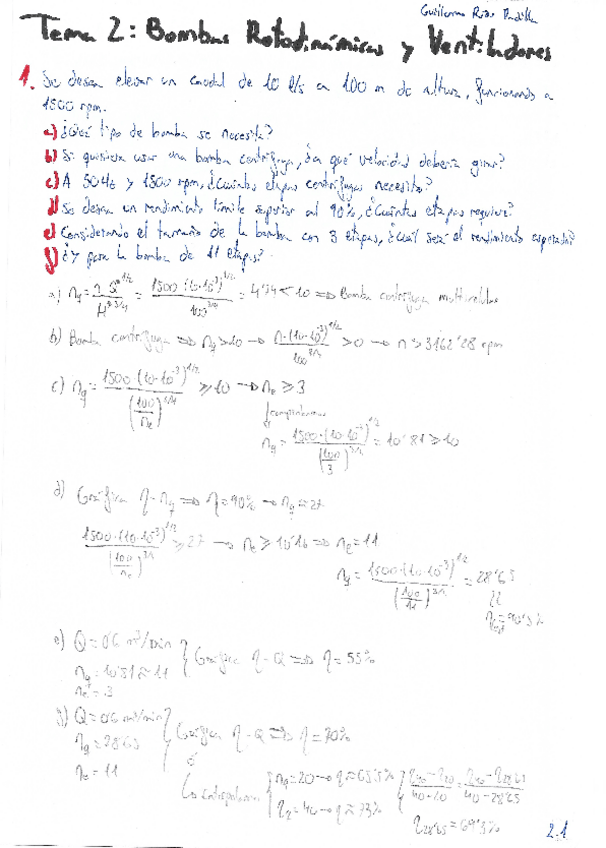 Guillermo Rojas Padilla
Tema 2: Bombas Rotodinámicas y Ventiladores
1. Se desea elevar un caudal de 10 l/s a 100 m de altura, funcionando a
1500 rpm.
a) ¿Qué tipo de bomba se necesita?
b) Si quisiera usar una bomba centrífuga, ¿a qué velocidad debería girar?
c) A 50Hz y 1500 rpm, ¿cuántas etapas centrífugas necesito?
d) Se desea un rendimiento límite superior al 90%, ¿Cuántas etapas requiere?
e) Considerando el tamaño de la bomba con 3 etapas, ¿cuál será el rendimiento esperado?
f) ¿Y para la bomba de 11 etapas?
a) nq = n Q^1/2 / H^3/4 = 1500 (10·10^-3)^1/2 / 100^3/4 = 4'74 < 10 ⇒ Bomba centrífuga multicelular
b) Bomba centrífuga ⇒ nq > 10 → n·(10·10^-3)^1/2 / 100^3/4 > 10 → n > 3162'28 rpm
c) nq = 1500 (10·10^-3)^1/2 / (100/ne)^3/4 ≥ 10 → ne ≥ 3
↓ comprobamos
nq = 1500·(10·10^-3)^1/2 / (100/3)^3/4 = 10'81 ≥ 10
d) Gráfica η-nq ⇒ η=90% → nq=27
1500·(10·10^-3)^1/2 / (100/ne)^3/4 ≥ 27 → ne ≥ 10'16 ⇒ ne = 11
nq = 1500·(10·10^-3)^1/2 / (100/11)^3/4 = 28'65
⇓
η = 90'3%
e) Q = 0'6 m³/min
nq = 10'81 ≈ 11
ne = 3
} Gráfica η-Q ⇒ η = 55%
f) Q = 0'6 m³/min
nq = 28'65
ne = 11
} Gráfica η-Q ⇒ η = 70%
ó
↳ interpolamos { nq=20 → η=65'5%
nq=40 → η=73% } η40-η20 / 40-20 = η40-η28'65 / 40-28'65
η28'65 = 69'3%
2.1